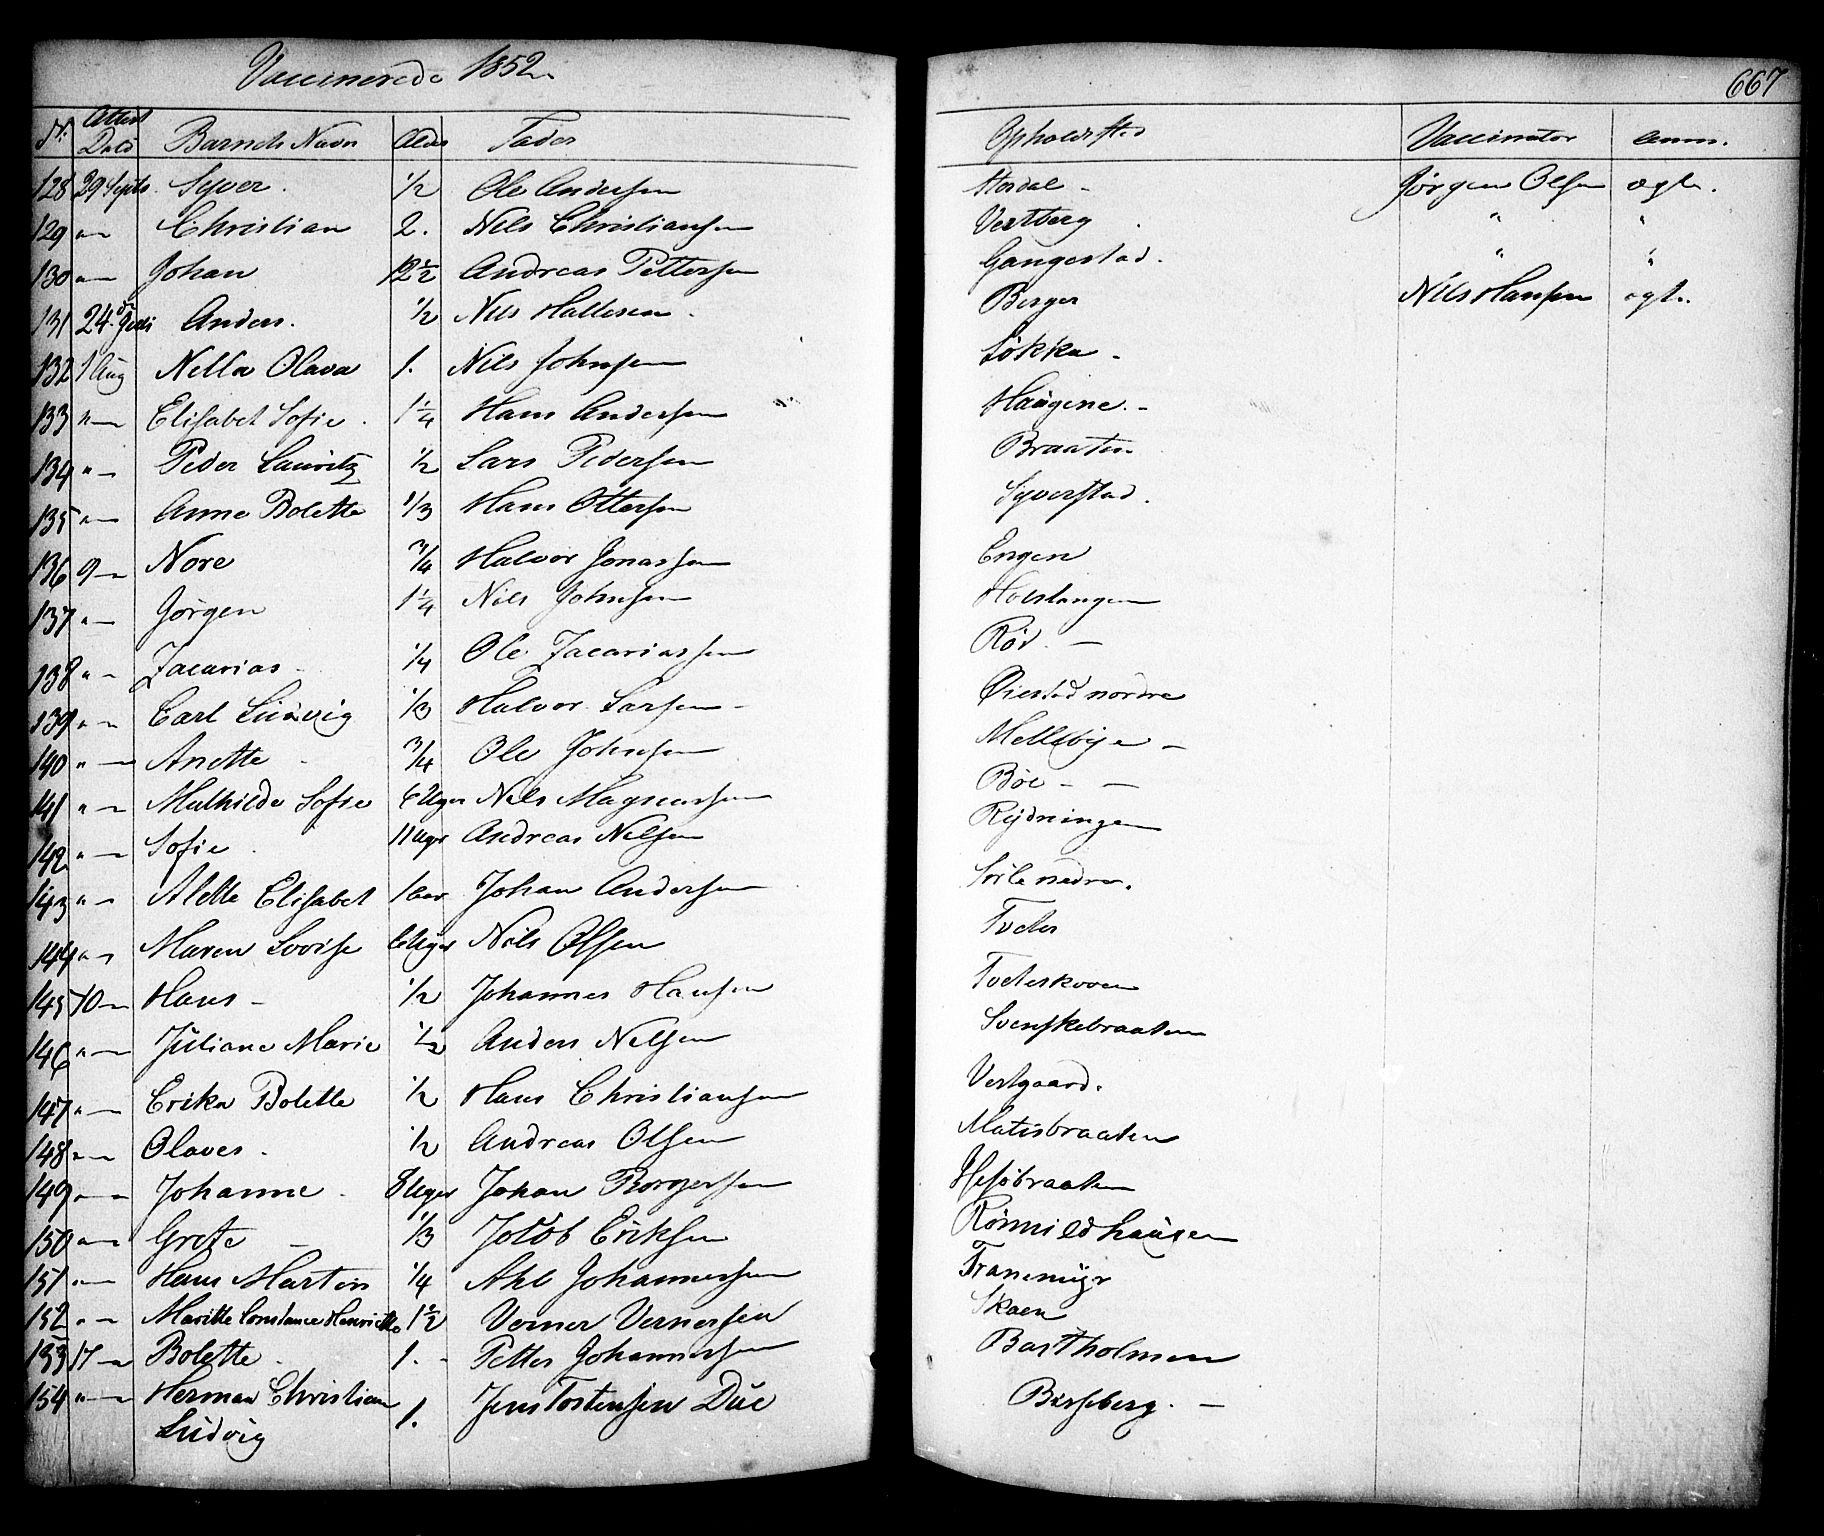 Vaccinerede 1852
667
Nr. Attest Dato Barnets Navn Alder Fader Opholdssted Vaccinator Anm.
128 29 Septb. Syver. 1/2 Ole Andersen Hordal - Jørgen Olsen ægte.
129 " — Christian 2. Nils Christiansen Vestberg " "
130 " — Johan 2 1/2 Andreas Pettersen Gangestad. " "
131 24. Juli Anders. 1/2 Nils Hallesen. Berger Nils Hansen ægte.
132 1 Aug Nella Olava 1. Nils Johnsen Løkka -
133 " — Elisabet Sofie. 1 1/4 Hans Andersen Haugene. -
134 " — Peder Lauritz 1/2 Lars Pedersen Braaten
135 " — Anne Bolette 1/3 Hans Ottersen Syverstad.
136 9 — Nore 3/4 Halvor Jonassen Engen
137 " — Jørgen 1 1/4 Nils Johnsen Holstangen
138 " — Zacarias - 1/4 Ole Zacariassen Rød. —
139 " — Carl Ludvig 1/3 Halvor Larsen - Øiestad nordre
140 " — Anette - 3/4 Ole Johnsen Mellebye -
141 " — Mathilde Sofie 6 Uger Nils Magnussen Bøe - —
142 " — Sofie. 11 Uger Andreas Nelsen Rydningen
143 " — Alette Elisabet 1 aar Johan Andersen Sørle nedre.
144 " — Maren Lovise 6 Uger Nils Olsen Tveter
145 10 — Hans - 1/2 Johannes Hansen Tveterskoven
146 " — Juliane Marie 1/2 Anders Nelsen Svenskebraaten
147 " — Erika Bolette 1/2 Hans Christiansen Vestgaard.
148 " — Olaves. 1/2 Andreas Olsen Matisbraaten
149 " — Johanne. 8 Uger Johan Borgersen
150 " — Grete — 1/3 Jacob Eriksen Rømmildhaugen
151 " — Hans Martin 1/4 Johannessen Tranemyr
152 " — Maritte Constance Henriette 1 1/2 Verner Vernersen Skaen
153 17 — Bolette. 1. - Petter Johannessen Bartholmen
154 " — Herman Christian 1. Jens Tostensen Due Børseberg. —
Ludvig